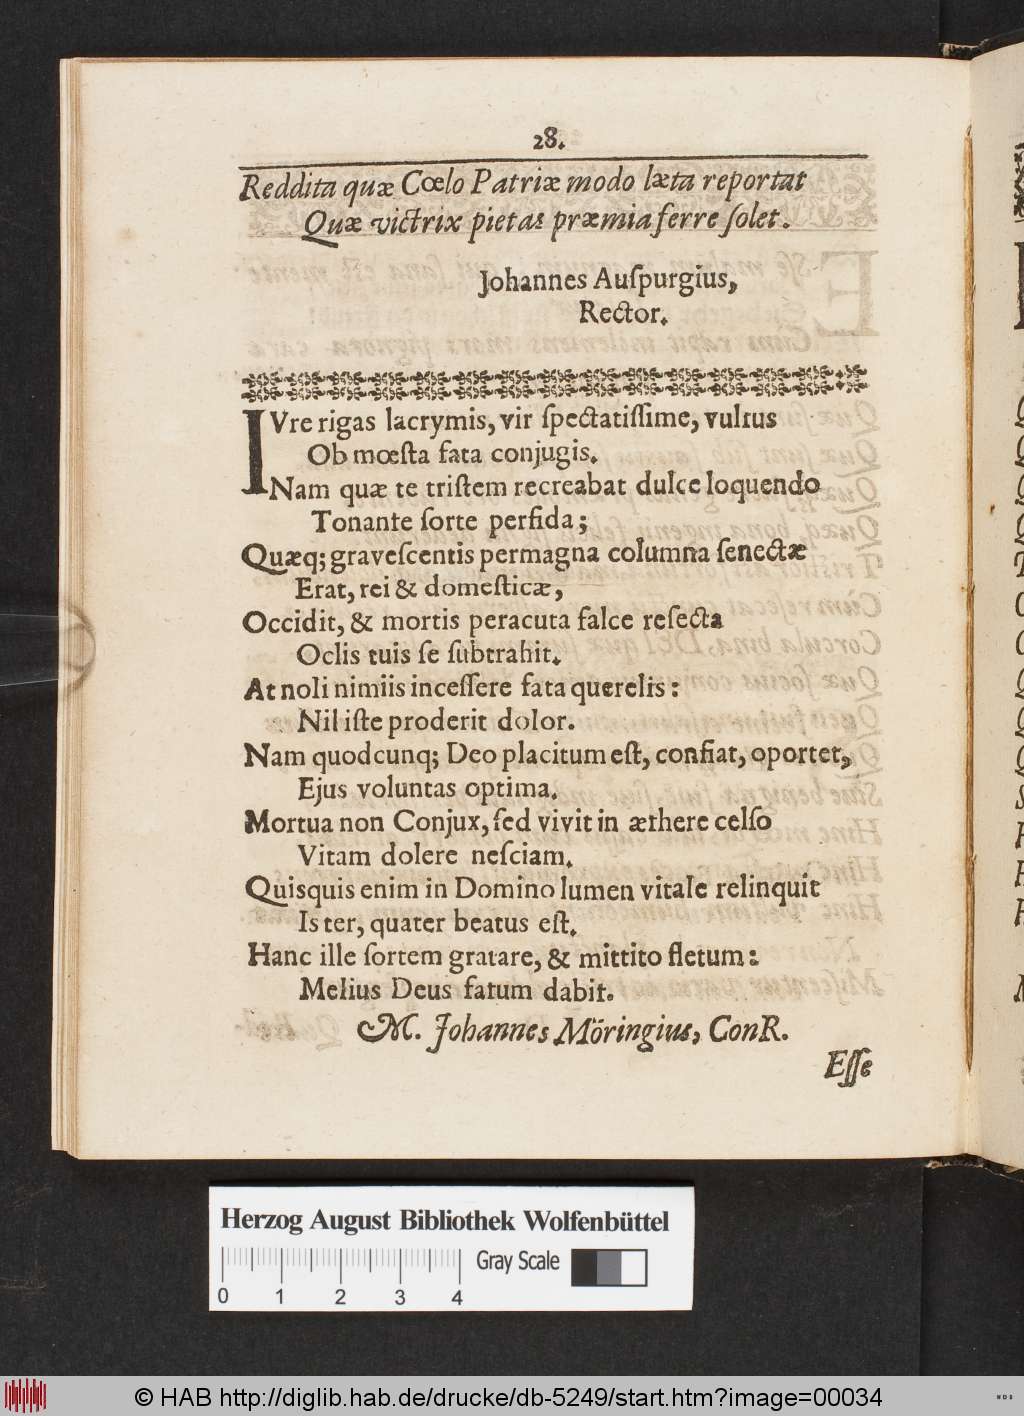 28.
Reddita quæ Cœlo Patriæ modo læta reportat
Quæ victrix pietas præmia ferre ſolet.
Johannes Auſpurgius,
Rector.
IVre rigas lacrymis, vir ſpectatiſſime, vultus
Ob mœſta fata conjugis.
Nam quæ te triſtem recreabat dulce loquendo
Tonante ſorte perfida;
Quæq; graveſcentis permagna columna ſenectæ
Erat, rei & domeſticæ,
Occidit, & mortis peracuta falce reſecta
Oclis tuis ſe ſubtrahit.
At noli nimiis inceſſere fata querelis:
Nil iſte proderit dolor.
Nam quodcunq; Deo placitum eſt, confiat, oportet,
Ejus voluntas optima.
Mortua non Conjux, ſed vivit in æthere celſo
Vitam dolere neſciam.
Quisquis enim in Domino lumen vitale relinquit
Is ter, quater beatus eſt.
Hanc ille ſortem gratare, & mittito fletum:
Melius Deus fatum dabit.
M. Johannes Möringius, ConR.
Eſſe
Herzog August Bibliothek Wolfenbüttel
Gray Scale
0 1 2 3 4
© HAB http://diglib.hab.de/drucke/db-5249/start.htm?image=00034